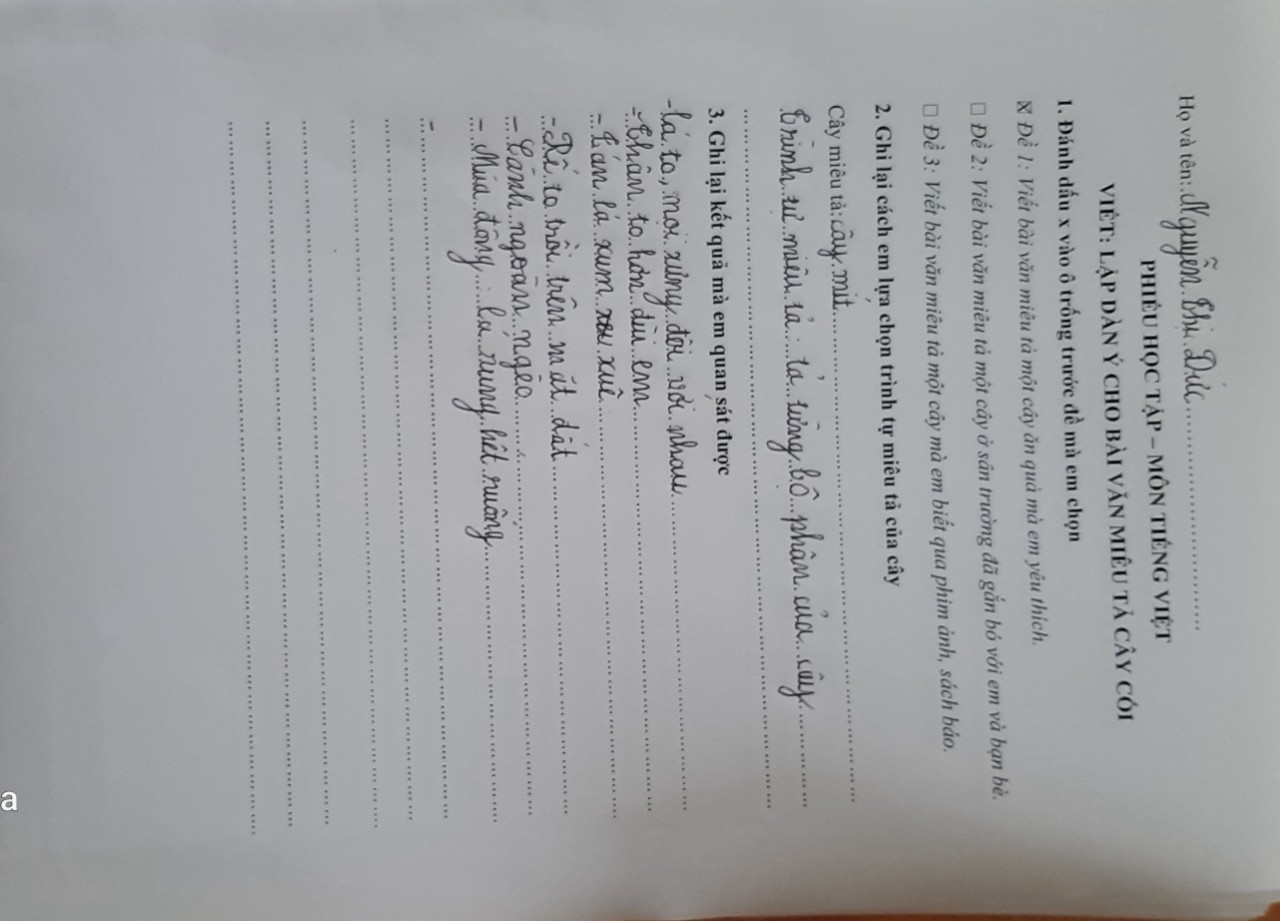 Họ và tên: Nguyễn Thị Dức
PHIẾU HỌC TẬP – MÔN TIẾNG VIỆT
VIẾT: LẬP DÀN Ý CHO BÀI VĂN MIÊU TẢ CÂY CỐI
1. Đánh dấu x vào ô trống trước đề mà em chọn
☒ Đề 1: Viết bài văn miêu tả một cây ăn quả mà em yêu thích.
☐ Đề 2: Viết bài văn miêu tả một cây ở sân trường đã gắn bó với em và bạn bè.
☐ Đề 3: Viết bài văn miêu tả một cây mà em biết qua phim ảnh, sách báo.
2. Ghi lại cách em lựa chọn trình tự miêu tả của cây
Cây miêu tả: cây mít
Trình tự miêu tả: tả từng bộ phân của cây
3. Ghi lại kết quả mà em quan sát được
- lá to, mọi xứng đôi với nhau
- Thân to hơn đùi em
- Tán lá xum xuê
- Rễ to trồi trên mát dất
- Cành ngoằn ngèo
- Mùa đông: lá rụng hết ruông
-
a